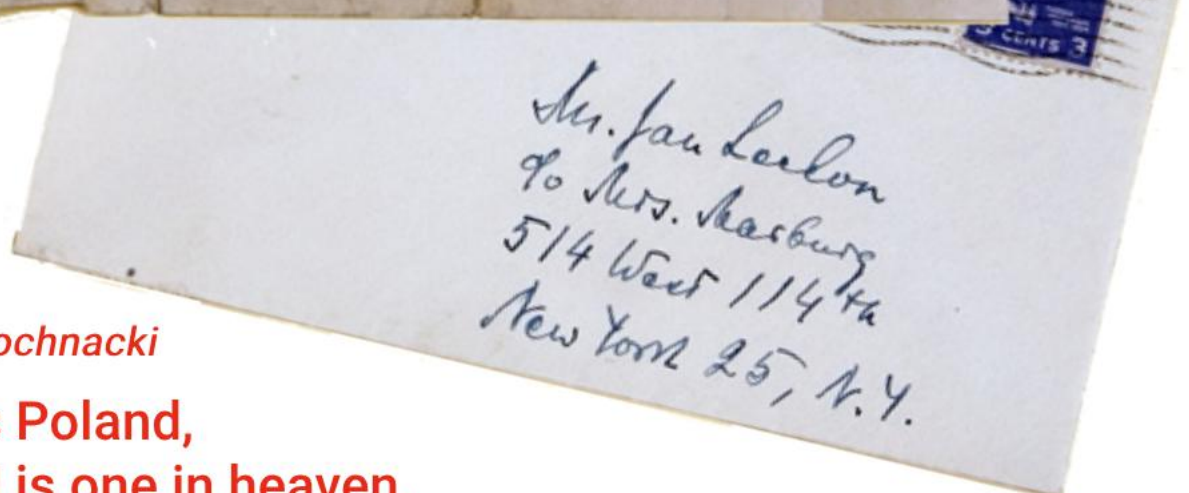 3 CENTS 3
Mr. Jan Lechon
c/o Mrs. Marburg
514 West 114th
New York 25, N.Y.
ochnacki
Poland,
is one in heaven